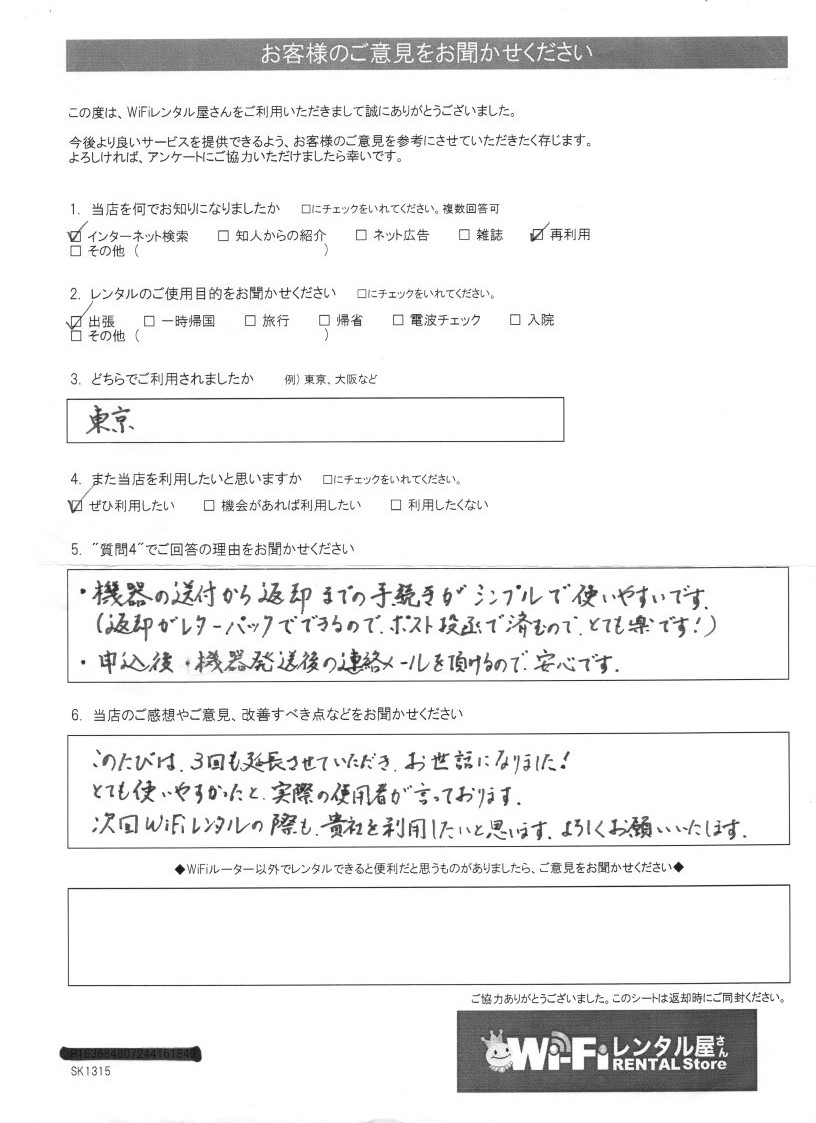 お客様のご意見をお聞かせください
この度は、WiFiレンタル屋さんをご利用いただきまして誠にありがとうございました。
今後より良いサービスを提供できるよう、お客様のご意見を参考にさせていただきたく存じます。
よろしければ、アンケートにご協力いただけましたら幸いです。
1. 当店を何でお知りになりましたか　□にチェックをいれてください。複数回答可
☑ インターネット検索　□ 知人からの紹介　□ ネット広告　□ 雑誌　☑ 再利用
□ その他（　　　　　　　　　　）
2. レンタルのご使用目的をお聞かせください　□にチェックをいれてください。
☑ 出張　□ 一時帰国　□ 旅行　□ 帰省　□ 電波チェック　□ 入院
□ その他（　　　　　　　　　　）
3. どちらでご利用されましたか　例）東京、大阪など
東京
4. また当店を利用したいと思いますか　□にチェックをいれてください。
☑ ぜひ利用したい　□ 機会があれば利用したい　□ 利用したくない
5. ″質問4″でご回答の理由をお聞かせください
・機器の送付から返却までの手続きがシンプルで使いやすいです。
(返却がレターパックでできるので、ポスト投函で済むので、とても楽です！)
・申込後・機器発送後の連絡メールを頂けるので、安心です。
6. 当店のご感想やご意見、改善すべき点などをお聞かせください
このたびは、3回も延長させていただき、お世話になりました！
とても使いやすかったと、実際の使用者が言っております。
次回WiFiレンタルの際も、貴社を利用したいと思います。よろしくお願いいたします。
◆WiFiルーター以外でレンタルできると便利だと思うものがありましたら、ご意見をお聞かせください◆
ご協力ありがとうございました。このシートは返却時にご同封ください。
Wi-Fiレンタル屋さん
RENTAL Store
SK1315